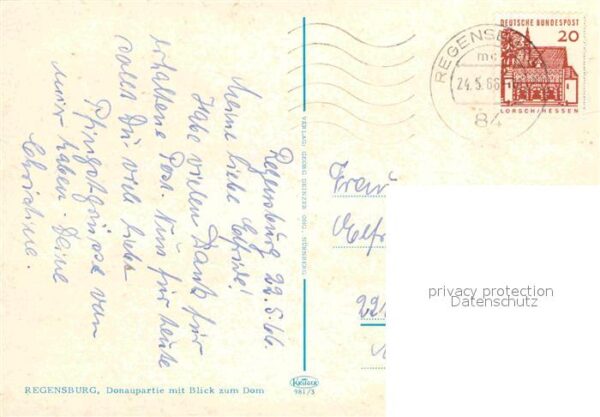 Regensburg 22.5.66.
Meine liebe Elfriede!
Habe vielen Dank für
erhaltene Post. Nun für heute
sollst Du viele liebe
Pfingstgrüsse von
mir haben. Deine
Christine.
DEUTSCHE BUNDESPOST
20
LORSCH/HESSEN
REGENSB
24.5.66
84
VERLAG: GEORG DEINZER OHG. NÜRNBERG
Frau
Elfr
221
privacy protection
Datenschutz
KRÜGER
981/3
REGENSBURG, Donaupartie mit Blick zum Dom